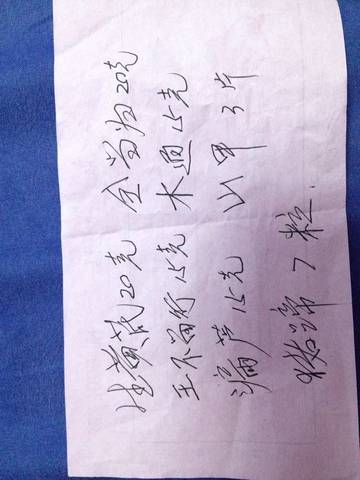 生黄芪20克 全当归20克
王不留行15克 木通15克
漏芦15克 山甲 3片
猪蹄 7粒.